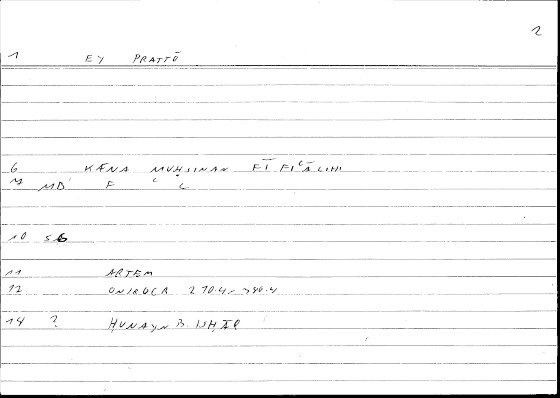 2
1 EY PRATTŌ
6 KĀNA MUḤSINAN FĪ FIʿĀLIHI
M MD F ʿ L
10 SB
11 ARTEM
12 ONIROCR 270.4
14 ? ḤUNAYN B. ISḤĀQ